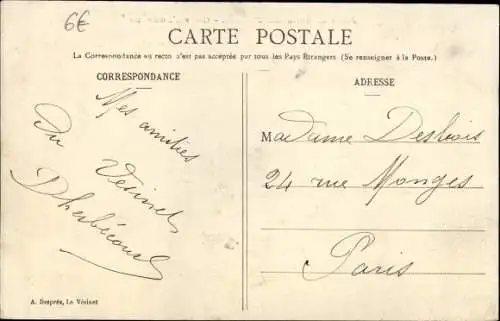 6€
CARTE POSTALE
La Correspondance au recto n'est pas acceptée par tous les Pays Étrangers (Se renseigner à la Poste.)
CORRESPONDANCE
Mes amitiés
du Vésinet
Dherbécourt
ADRESSE
Madame Desbois
24 rue Monges
Paris
A. Desprès, Le Vésinet